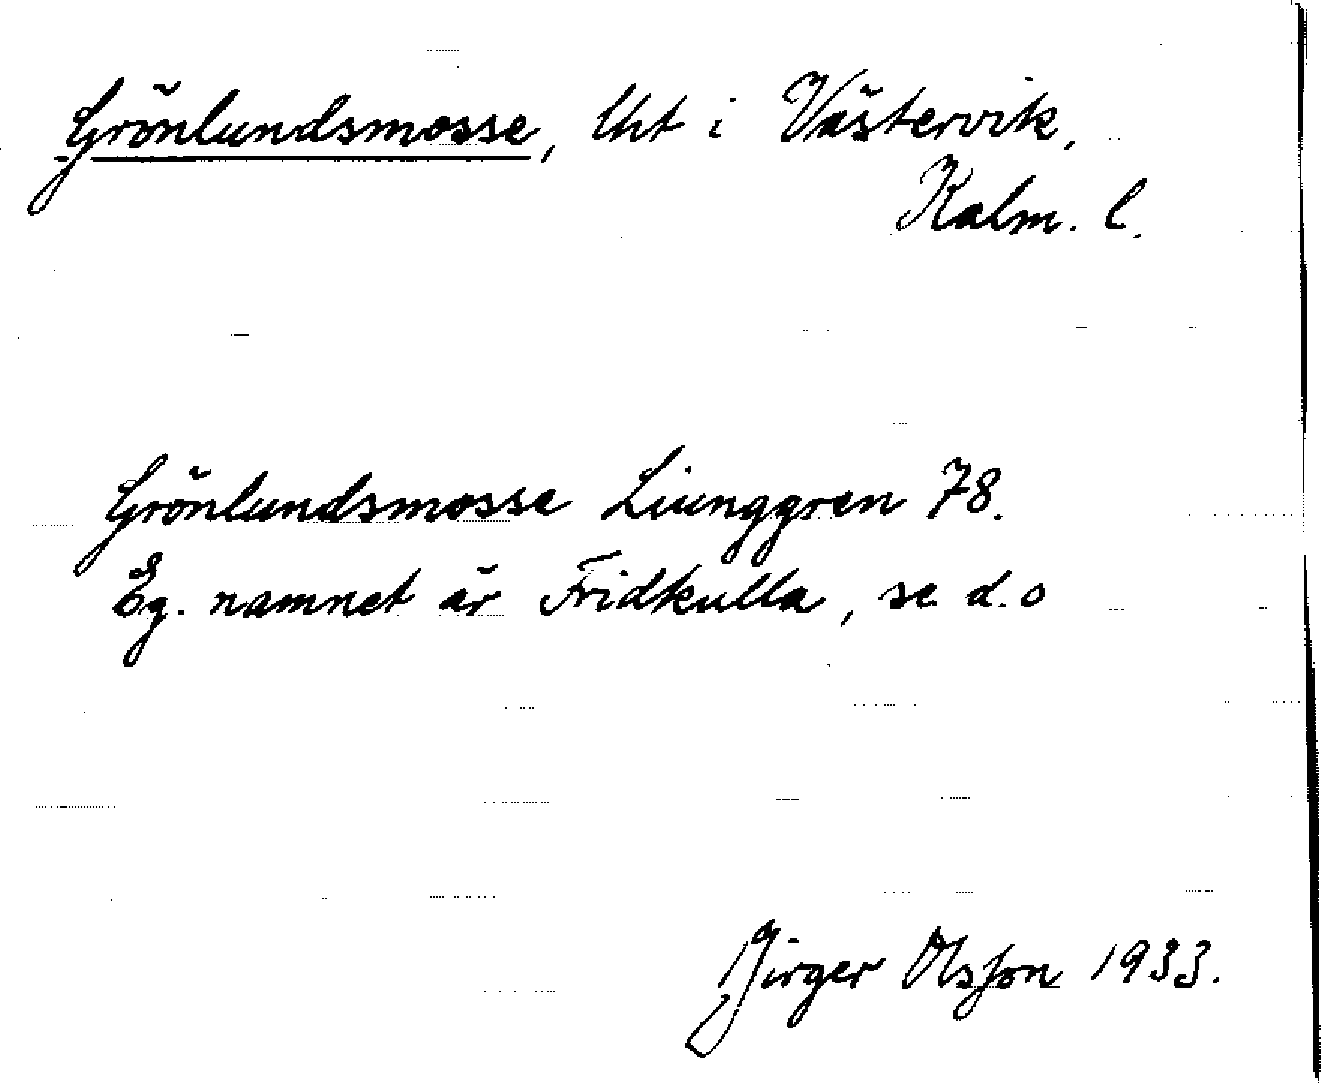 Grönlundsmosse, lht i Västervik,
Kalm. l.
Grönlundsmosse Liunggren 78.
Eg. namnet är Fridkulla, se d.o
Birger Olsson 1933.